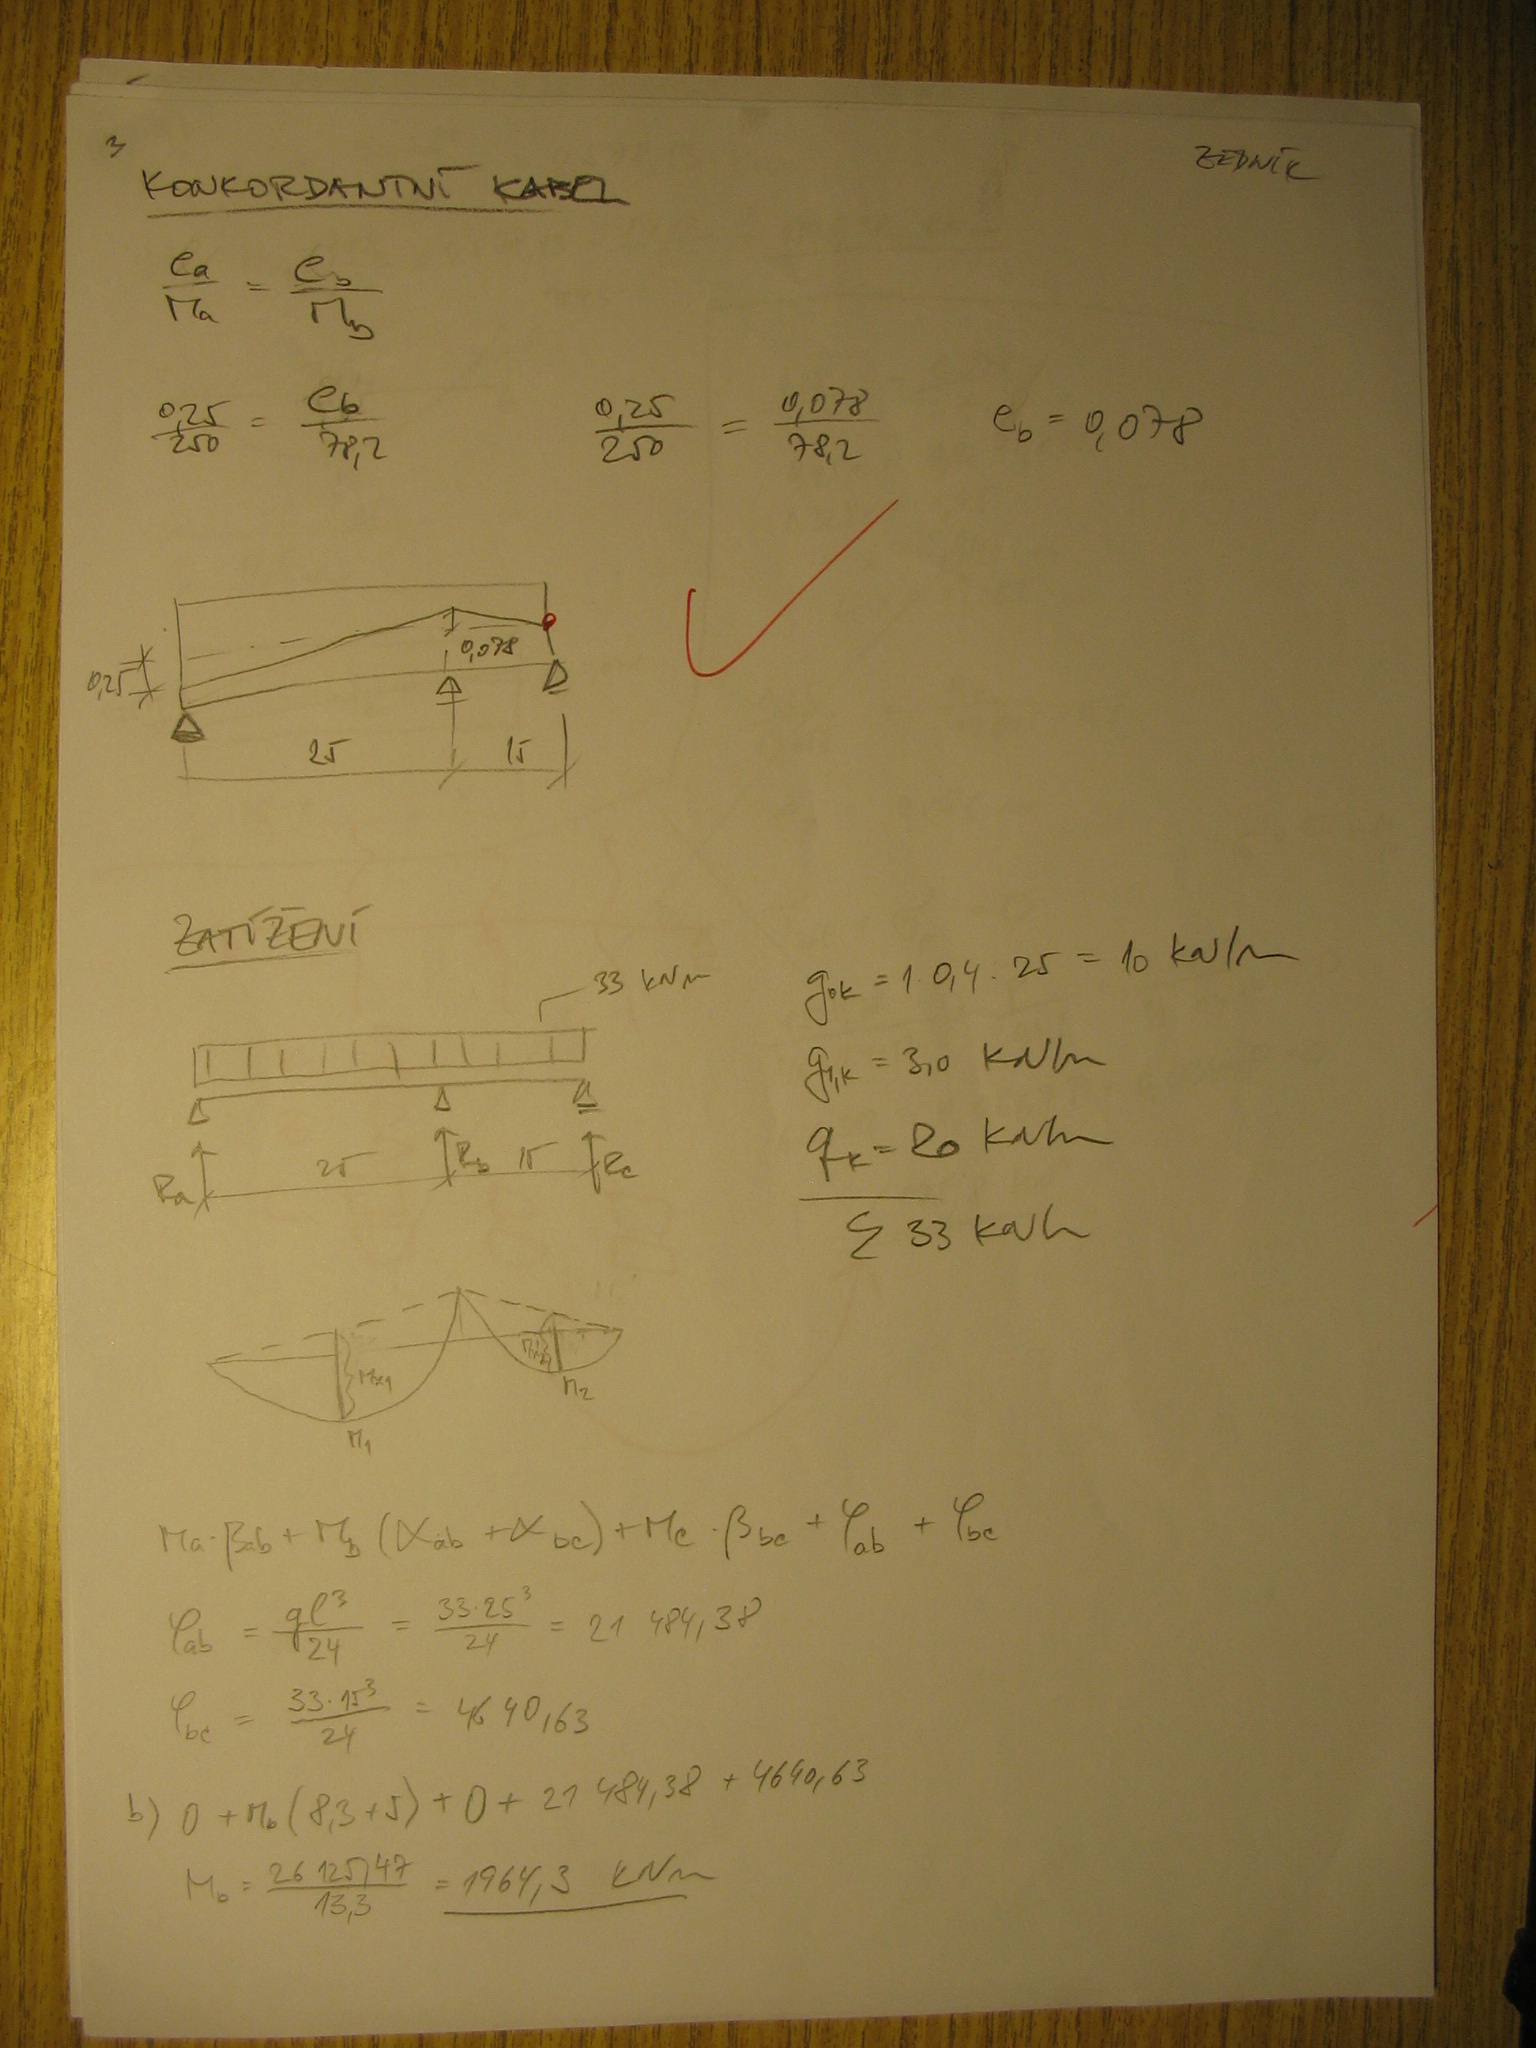 3
ZEDNÍK
KONKORDANTNÍ KABEL
ea/Ma = eb/Mb
0,25/250 = eb/78,2
0,25/250 = 0,078/78,2
eb = 0,078
0,25
0,078
25
15
ZATÍŽENÍ
33 kN/m
Ra
25
Rb
15
Rc
g0k = 1 · 0,4 · 25 = 10 kN/m
g1,k = 3,0 kN/m
qk = 20 kN/m
Σ 33 kN/m
M1
M2
Ma · βab + Mb (αab + αbc) + Mc · βbc + φab + φbc
φab = ql³/24 = 33·25³/24 = 21 484,38
φbc = 33·15³/24 = 4640,63
b) 0 + Mb (8,3+5) + 0 + 21 484,38 + 4640,63
Mb = 26 125,47/13,3 = 1964,3 kNm